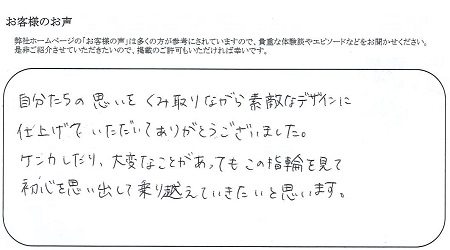 お客様のお声
弊社ホームページの「お客様の声」は多くの方が参考にされていますので、貴重な体験談やエピソードなどをお聞かせください。
是非ご紹介させていただきたいので、掲載のご許可もいただければ幸いです。
自分たちの思いをくみ取りながら素敵なデザインに
仕上げていただいてありがとうございました。
ケンカしたり、大変なことがあってもこの指輪を見て
初心を思い出して乗り越えていきたいと思います。